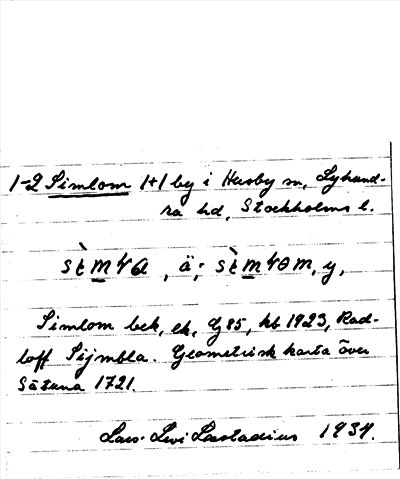 1-2 Simlom 1+1 by i Husby sn, Lyhund-
ra hd, Stockholms l.
, ä; , y,
Simlom bek, ek, G85, kb 1923, Rad-
loff Sijmbla. Geometrisk karta över
Sätuna 1721.
Lars-Levi Læstadius 1934.